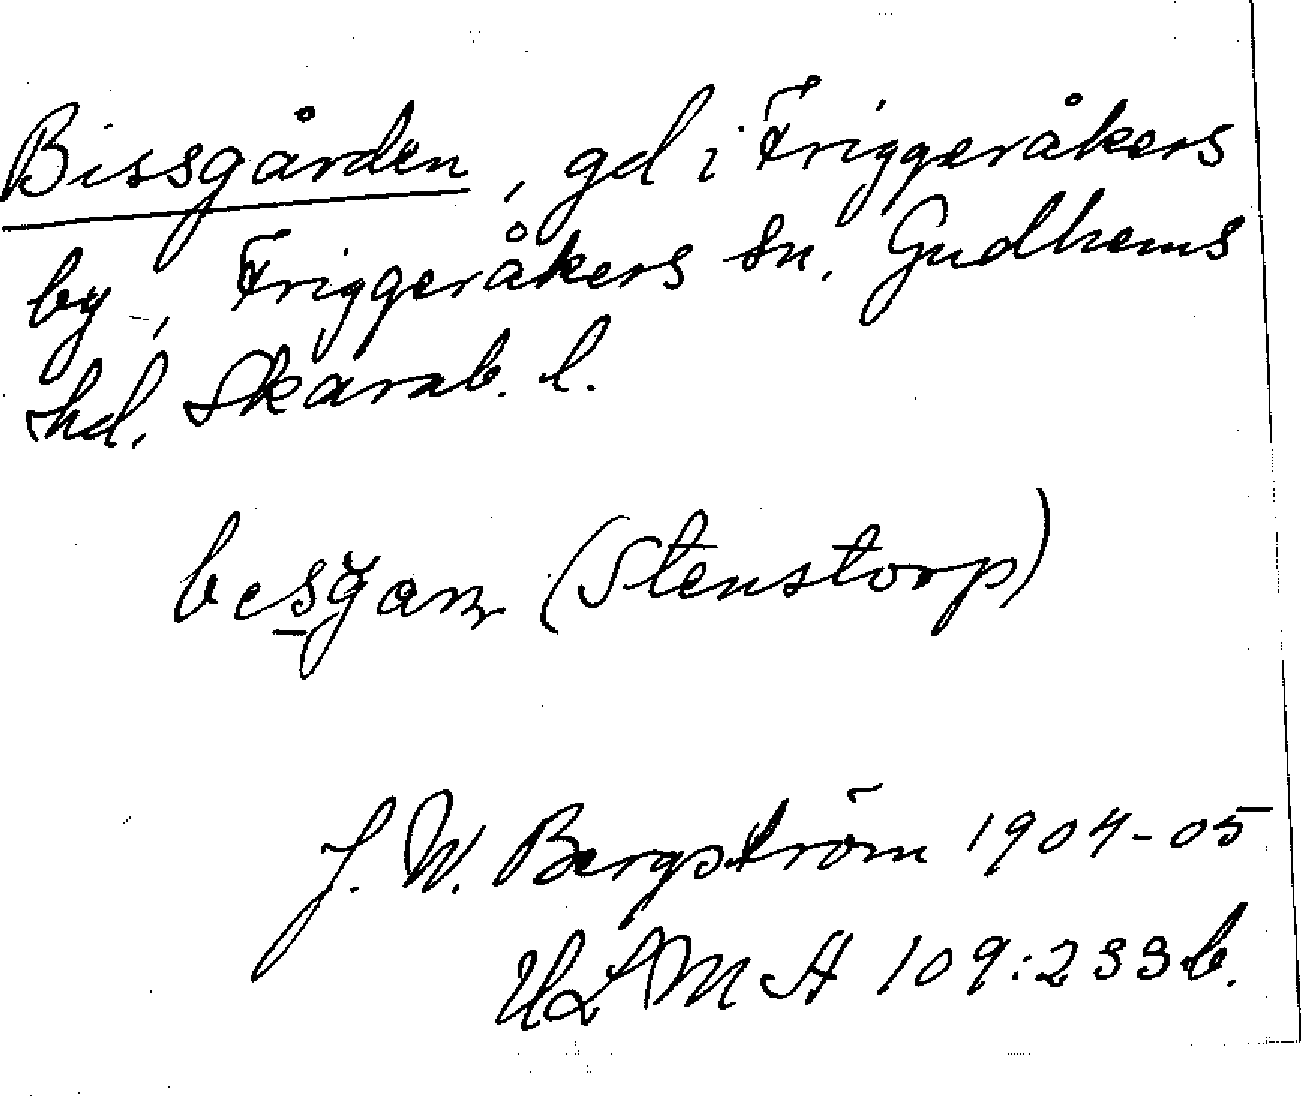 Bissgården, gd i Friggeråkers
by, Friggeråkers sn. Gudhems
hd. Skarab. l.
besgan (Stenstorp)
J. W. Bergström 1904-05
ULMA 109:233 b.